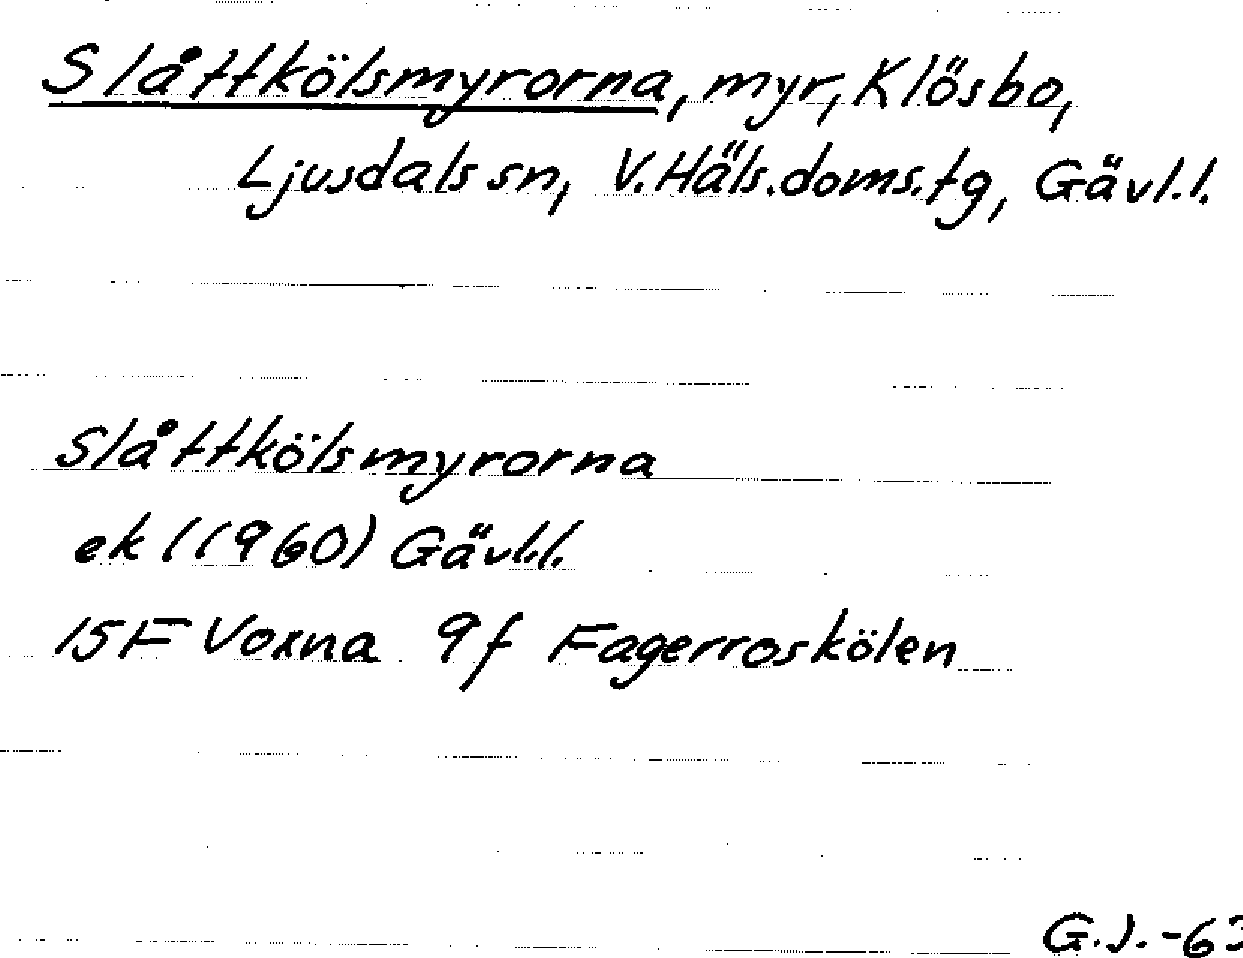 Slåttkölsmyrorna, myr, Klösbo,
Ljusdals sn, V. Häls. doms.tg, Gävl.l.
Slåttkölsmyrorna
ek (1960) Gävl.l.
15F Voxna 9f Fagerroskölen
G.J. -63